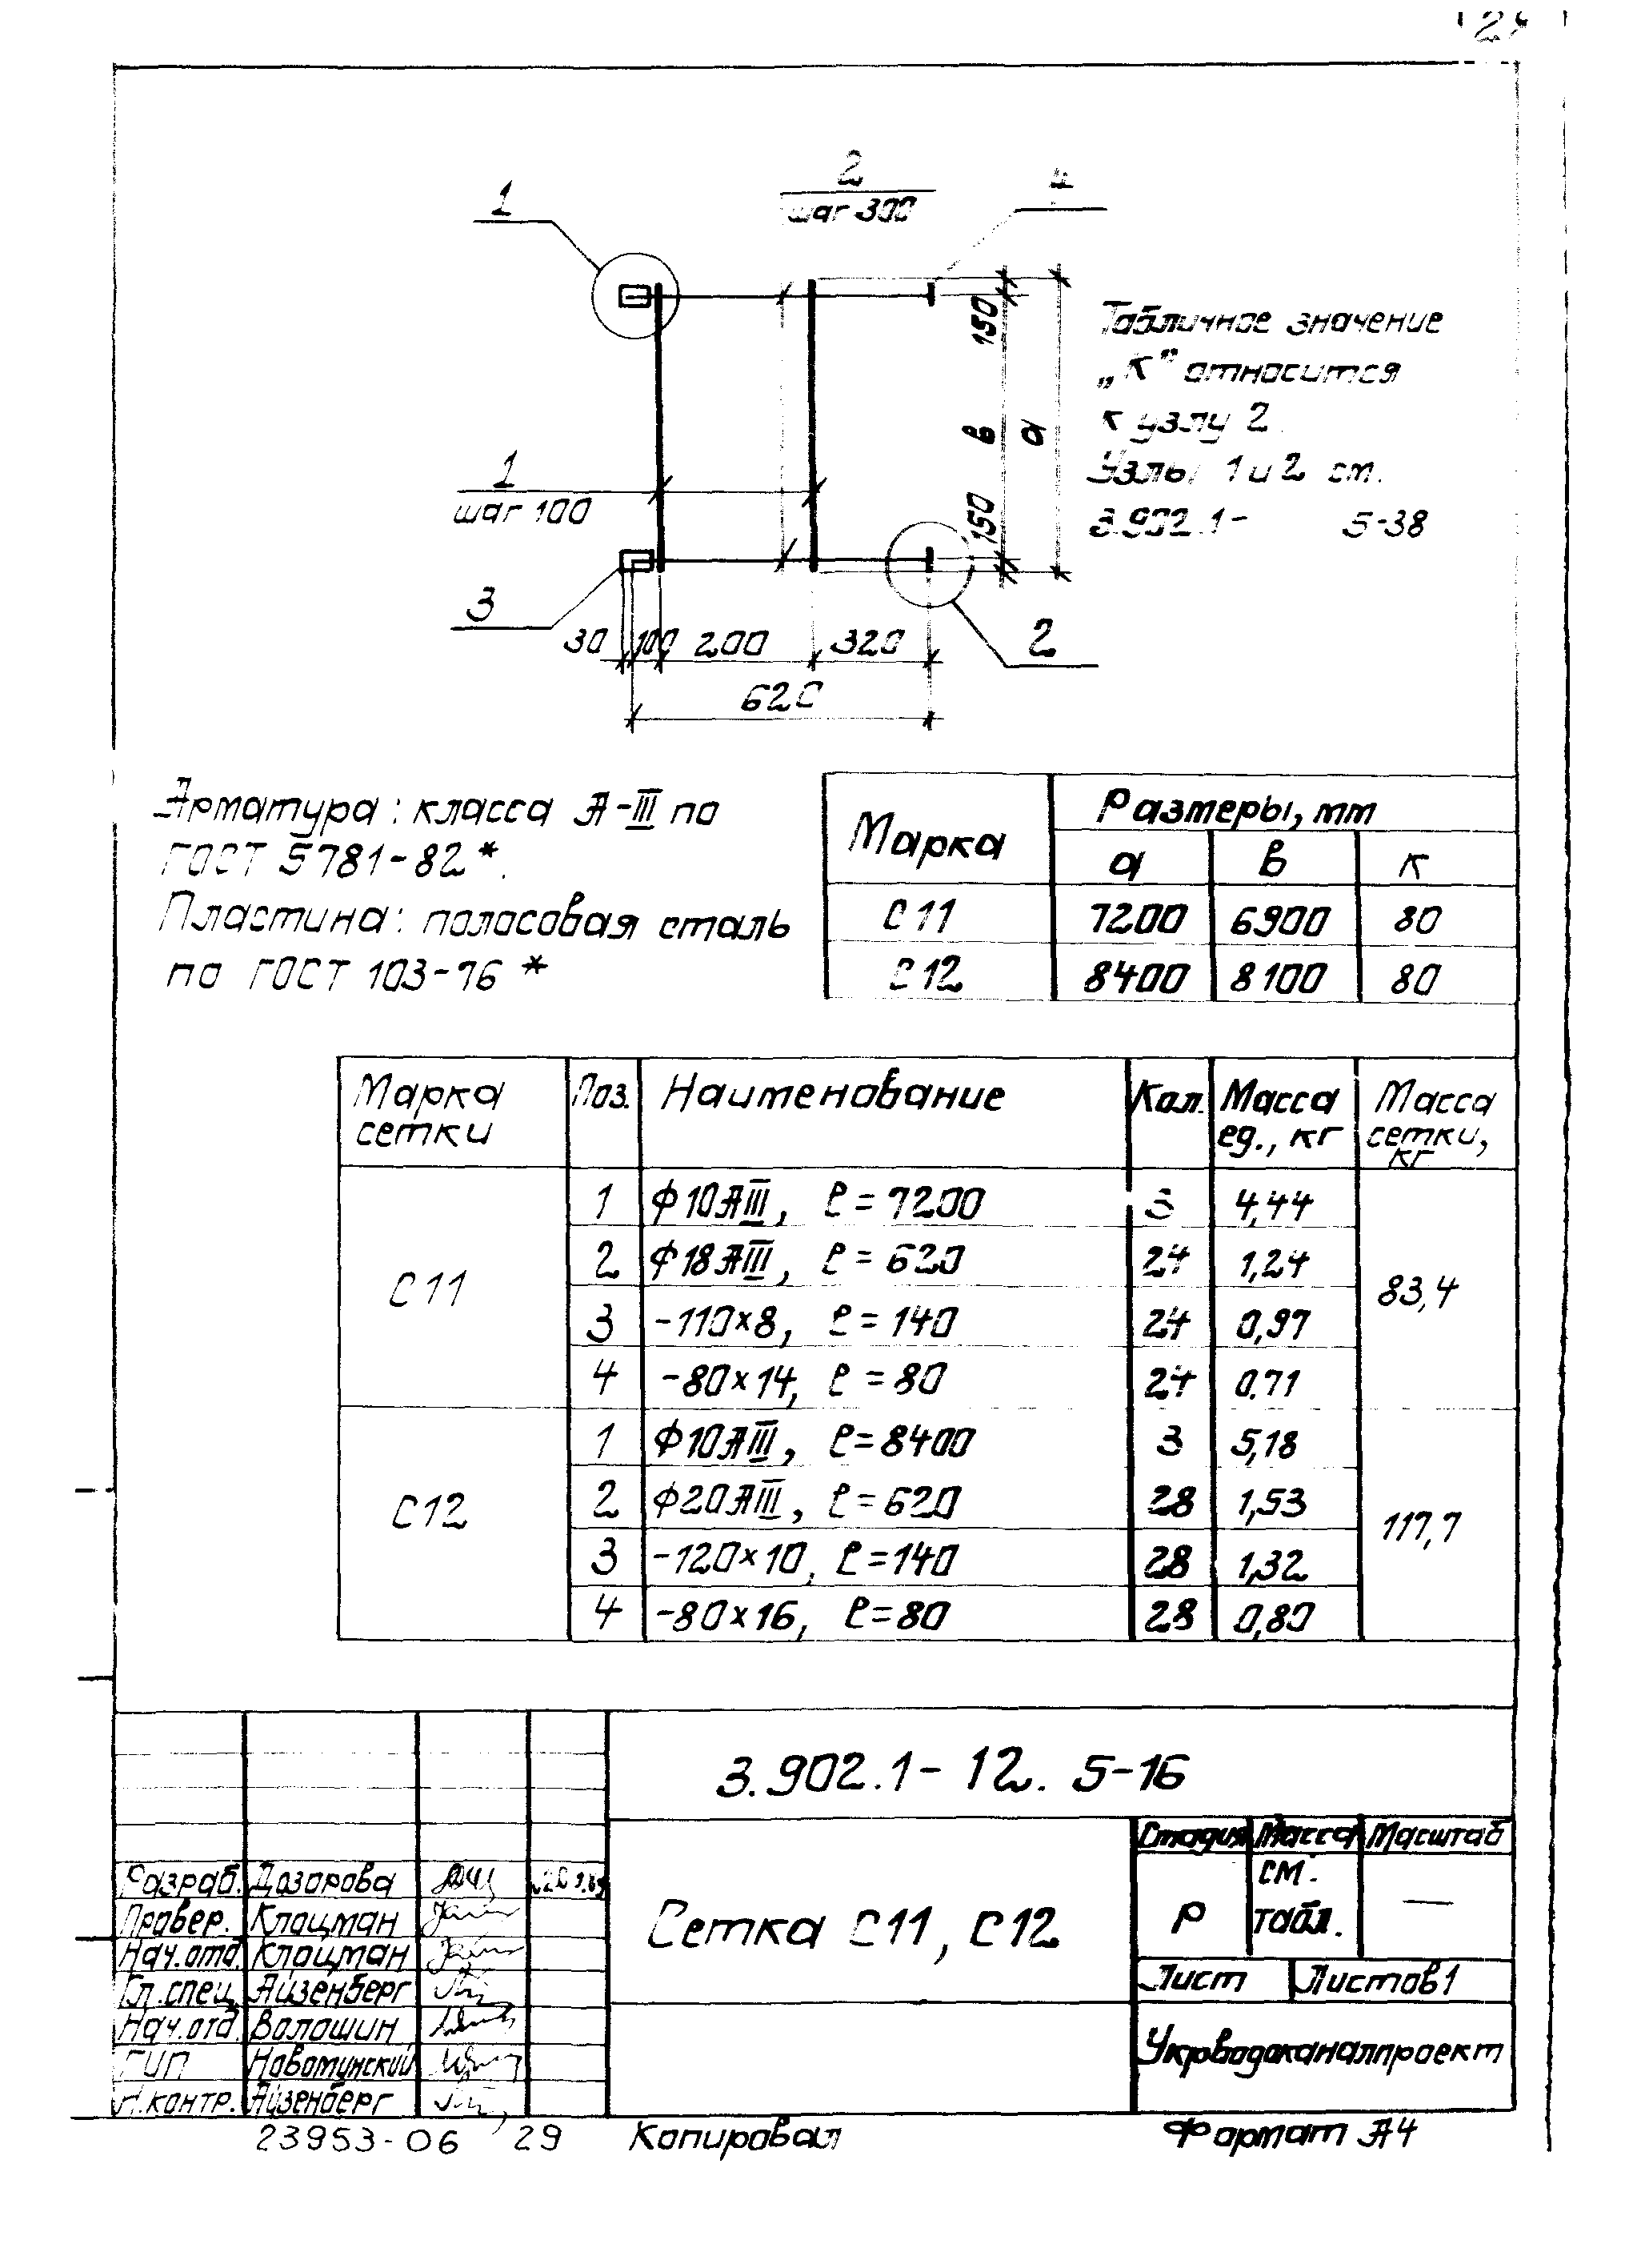 1
2
шаг 300
4
150
в
а
150
1
шаг 100
3
30 100 200 320
620
2
Табличное значение
„К" относится
к узлу 2.
Узлы 1 и 2 см.
3.902.1- 5-38
Арматура: класса А-III по
ГОСТ 5781-82*.
Пластина: полосовая сталь
по ГОСТ 103-76*
Марка Размеры, мм
а в к
С11 7200 6900 80
С12 8400 8100 80
Марка сетки Поз. Наименование Кол. Масса ед., кг Масса сетки, кг
С11 83,4
1 ф10АIII, ℓ=7200 3 4,44
2 ф18АIII, ℓ=620 24 1,24
3 -110×8, ℓ=140 24 0,97
4 -80×14, ℓ=80 24 0.71
С12 117,7
1 ф10АIII, ℓ=8400 3 5,18
2 ф20АIII, ℓ=620 28 1,53
3 -120×10, ℓ=140 28 1,32
4 -80×16, ℓ=80 28 0,80
3.902.1-12. 5-16
Разраб. Дозорова
Провер. Клоцман
Нач.отд. Клоцман
Гл.спец. Айзенберг
Нач.отд. Волошин
ГИП Новоминский
Н.контр. Айзенберг
Сетка С11, С12
Стадия Масса Масштаб
Р см. табл. —
Лист Листов 1
Укрводоканалпроект
23953-06 29 Копировал Формат А4